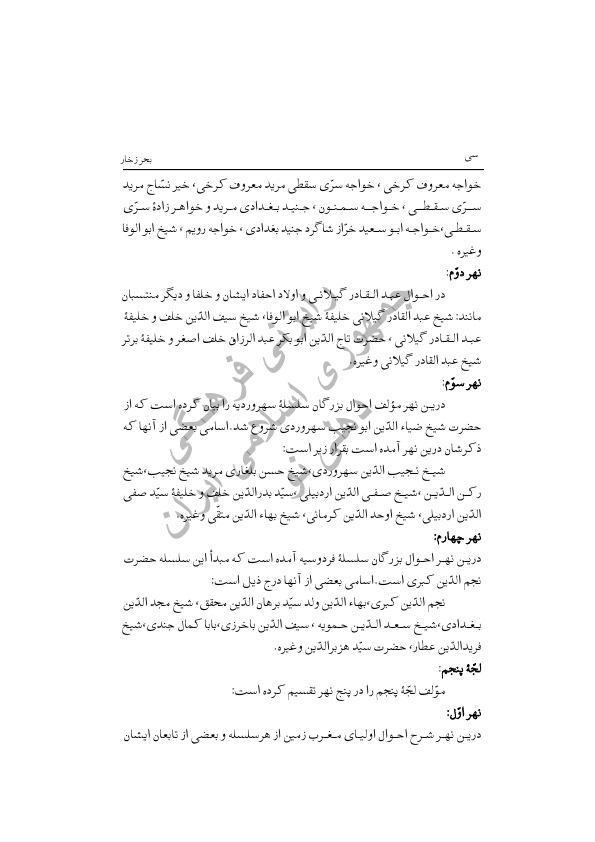 سی
بحر زخار
خواجه معروف کرخی ، خواجه سرّی سقطی مرید معروف کرخی، خیر نسّاج مرید
سرّی سقطی ، خواجه سمنون ، جنید بغدادی مرید و خواهر زادۀ سرّی
سقطی،خواجه ابو سعید خرّاز شاگرد جنید بغدادی ، خواجه رویم ، شیخ ابو الوفا
وغیره .
نهر دوّم:
در احوال عبد القادر گیلانی و اولاد احفاد ایشان و خلفا و دیگر منتسبان
مانند: شیخ عبد القادر گیلانی خلیفۀ شیخ ابو الوفا، شیخ سیف الدّین خلف و خلیفۀ
عبد القادر گیلانی ، حضرت تاج الدّین ابو بکر عبد الرزاق خلف اصغر و خلیفۀ برتر
شیخ عبد القادر گیلانی وغیره.
نهر سوّم:
درین نهر مؤلف احوال بزرگان سلسلۀ سهروردیه را بیان کرده است که از
حضرت شیخ ضیاء الدّین ابو نجیب سهروردی شروع شد.اسامی بعضی از آنها که
ذکرشان درین نهر آمده است بقرار زیر است:
شیخ نجیب الدّین سهروردی،شیخ حسن بلغاری مرید شیخ نجیب،شیخ
رکن الدّین ،شیخ صفی الدّین اردبیلی ،سیّد بدرالدّین خلف و خلیفۀ سیّد صفی
الدّین اردبیلی، شیخ اوحد الدّین کرمانی، شیخ بهاء الدّین متقّی وغیره.
نهر چهارم:
درین نهر احوال بزرگان سلسلۀ فردوسیه آمده است که مبدأ این سلسله حضرت
نجم الدّین کبری است.اسامی بعضی از آنها درج ذیل است:
نجم الدّین کبری،بهاء الدّین ولد سیّد برهان الدّین محقق، شیخ مجد الدّین
بغدادی،شیخ سعد الدّین حمویه ، سیف الدّین باخرزی،بابا کمال جندی،شیخ
فریدالدّین عطار، حضرت سیّد هزبرالدّین وغیره.
لجّۀ پنجم:
مؤلف لجّۀ پنجم را در پنج نهر تقسیم کرده است:
نهر اوّل:
درین نهر شرح احوال اولیای مغرب زمین از هرسلسله و بعضی از تابعان ایشان
رایزنی فرهنگی
جمهوری اسلامی ایران
دهلی نو